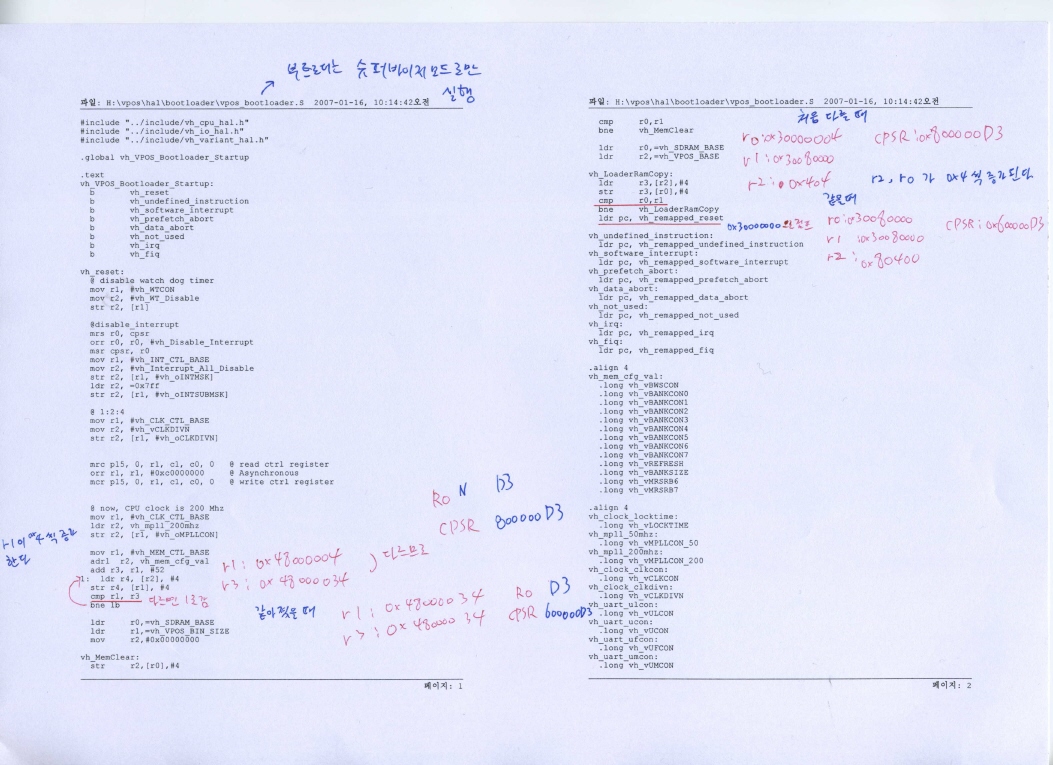 부트로더는 슈퍼바이저 모드로만
실행
파일: H:\vpos\hal\bootloader\vpos_bootloader.S  2007-01-16, 10:14:42오전
#include "../include/vh_cpu_hal.h"
#include "../include/vh_io_hal.h"
#include "../include/vh_variant_hal.h"
.global vh_VPOS_Bootloader_Startup
.text
vh_VPOS_Bootloader_Startup:
b vh_reset
b vh_undefined_instruction
b vh_software_interrupt
b vh_prefetch_abort
b vh_data_abort
b vh_not_used
b vh_irq
b vh_fiq
vh_reset:
@ disable watch dog timer
mov r1, #vh_WTCON
mov r2, #vh_WT_Disable
str r2, [r1]
@disable_interrupt
mrs r0, cpsr
orr r0, r0, #vh_Disable_Interrupt
msr cpsr, r0
mov r1, #vh_INT_CTL_BASE
mov r2, #vh_Interrupt_All_Disable
str r2, [r1, #vh_oINTMSK]
ldr r2, =0x7ff
str r2, [r1, #vh_oINTSUBMSK]
@ 1:2:4
mov r1, #vh_CLK_CTL_BASE
mov r2, #vh_vCLKDIVN
str r2, [r1, #vh_oCLKDIVN]
mrc p15, 0, r1, c1, c0, 0 @ read ctrl register
orr r1, r1, #0xc0000000 @ Asynchronous
mcr p15, 0, r1, c1, c0, 0 @ write ctrl register
R0 N D3
CPSR 800000D3
@ now, CPU clock is 200 Mhz
mov r1, #vh_CLK_CTL_BASE
ldr r2, vh_mpll_200mhz
str r2, [r1, #vh_oMPLLCON]
r1이 0x4씩 증가
한다
mov r1, #vh_MEM_CTL_BASE
adrl r2, vh_mem_cfg_val
add r3, r1, #52
1: ldr r4, [r2], #4
str r4, [r1], #4
cmp r1, r3 다르면 1로감
bne 1b
r1: 0x48000004
r3: 0x48000034
다르므로
같아졌을 때 r1: 0x48000034 R0 D3
r3: 0x48000034 CPSR 600000D3
ldr r0,=vh_SDRAM_BASE
ldr r1,=vh_VPOS_BIN_SIZE
mov r2,#0x00000000
vh_MemClear:
str r2,[r0],#4
페이지: 1
파일: H:\vpos\hal\bootloader\vpos_bootloader.S  2007-01-16, 10:14:42오전
cmp r0,r1
bne vh_MemClear
ldr r0,=vh_SDRAM_BASE
ldr r2,=vh_VPOS_BASE
처음 다를 때
r0:0x30000004 CPSR:0x800000D3
r1:0x30080000
r2: 0x404 r2, r0 가 0x4씩 증가된다.
vh_LoaderRamCopy:
ldr r3,[r2],#4
str r3,[r0],#4
cmp r0,r1
bne vh_LoaderRamCopy
ldr pc, vh_remapped_reset 0x30000000으로 점프
같을때
r0:0x30080000 CPSR:0x600000D3
r1:0x30080000
r2:0x80400
vh_undefined_instruction:
ldr pc, vh_remapped_undefined_instruction
vh_software_interrupt:
ldr pc, vh_remapped_software_interrupt
vh_prefetch_abort:
ldr pc, vh_remapped_prefetch_abort
vh_data_abort:
ldr pc, vh_remapped_data_abort
vh_not_used:
ldr pc, vh_remapped_not_used
vh_irq:
ldr pc, vh_remapped_irq
vh_fiq:
ldr pc, vh_remapped_fiq
.align 4
vh_mem_cfg_val:
.long vh_vBWSCON
.long vh_vBANKCON0
.long vh_vBANKCON1
.long vh_vBANKCON2
.long vh_vBANKCON3
.long vh_vBANKCON4
.long vh_vBANKCON5
.long vh_vBANKCON6
.long vh_vBANKCON7
.long vh_vREFRESH
.long vh_vBANKSIZE
.long vh_vMRSRB6
.long vh_vMRSRB7
.align 4
vh_clock_locktime:
.long vh_vLOCKTIME
vh_mpll_50mhz:
.long vh_vMPLLCON_50
vh_mpll_200mhz:
.long vh_vMPLLCON_200
vh_clock_clkcon:
.long vh_vCLKCON
vh_clock_clkdivn:
.long vh_vCLKDIVN
vh_uart_ulcon:
.long vh_vULCON
vh_uart_ucon:
.long vh_vUCON
vh_uart_ufcon:
.long vh_vUFCON
vh_uart_umcon:
.long vh_vUMCON
페이지: 2